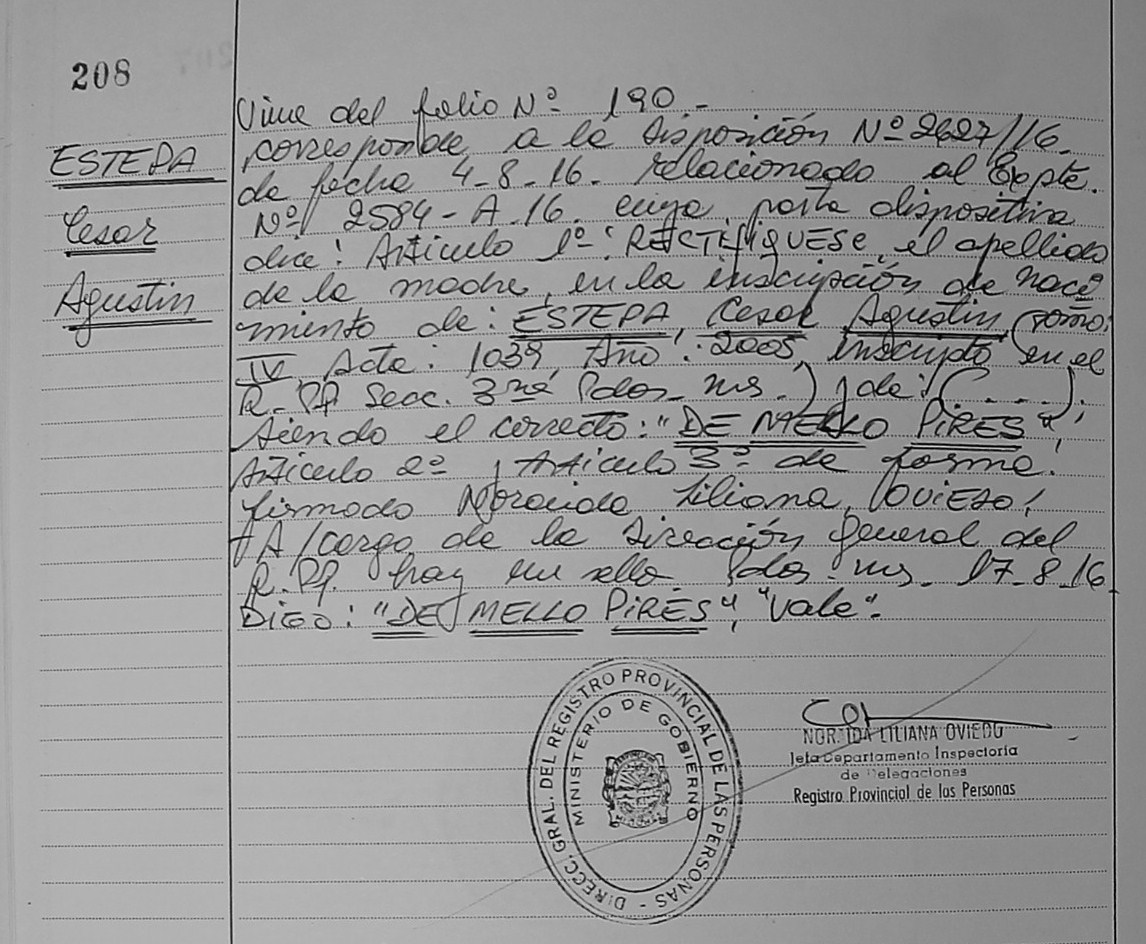 208
ESTEPA
Cesar
Agustin
Viene del folio Nº 190 -
corresponde a la Disposición Nº 2627/16.
de fecha 4-8-16. relacionado al Expte.
Nº 2584-A-16. cuya parte dispositiva
dice: Articulo 1º: RECTIFIQUESE, el apellido
de la madre, en la inscripción de naci
miento de: ESTEPA, Cesar Agustin (Tomo:
IV Acta: 1039, Año: 2005, inscripto en el
R. PP Secc. 3ra (dos ms.) de: (....).
siendo el correcto: "DE MELLO PIRES",
Articulo 2º, Articulo 3º de forma.
firmado Liliana OVIEDO,
A/cargo de la Dirección General del
R. PP. hay un sello 17-8-16
Digo: "DE MELLO PIRES", "Vale".
DIRECC. GRAL. DEL REGISTRO PROVINCIAL DE LAS PERSONAS -
MINISTERIO DE GOBIERNO
LILIANA OVIEDO
Jefa Departamento Inspectoria
de Delegaciones
Registro Provincial de las Personas